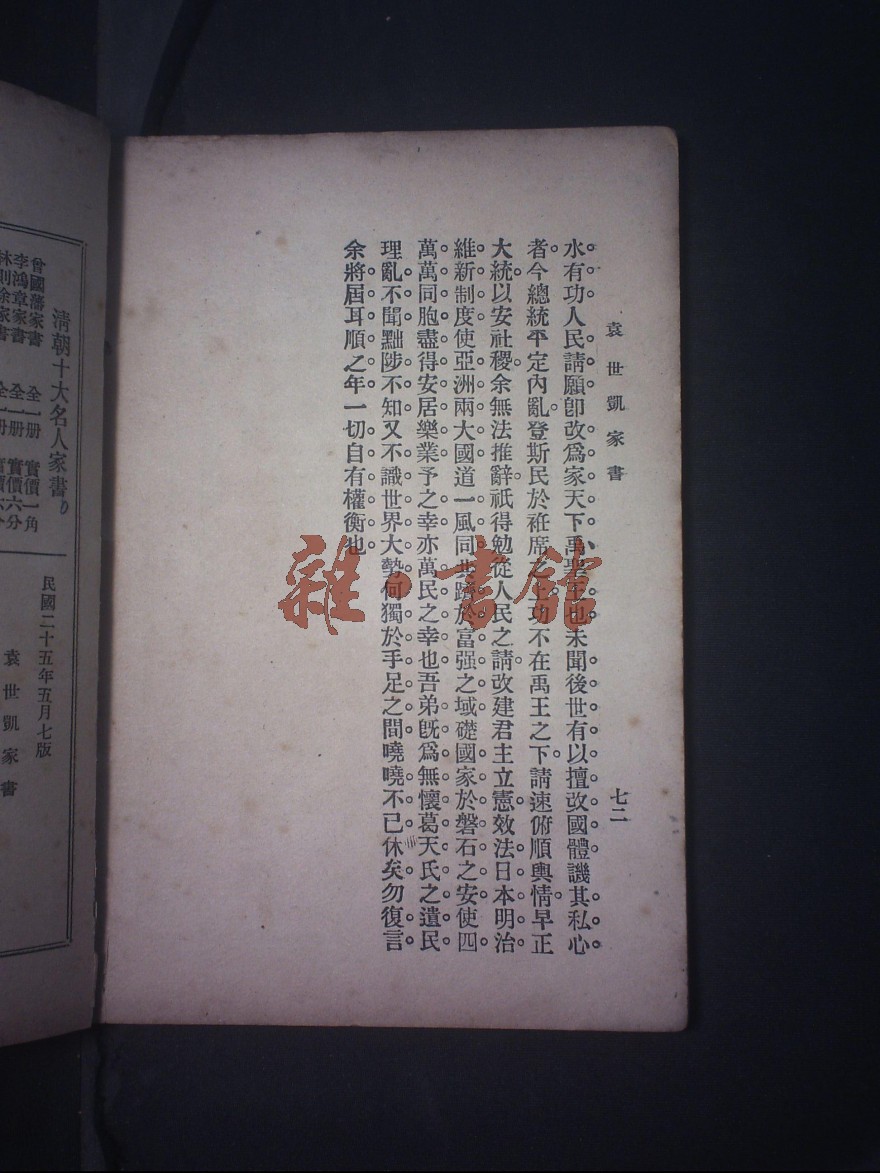 袁世凱家書
七二
水有功人民請願卽改爲家天下禹聖王也未聞後世有以擅改國體譏其私心
者今總統平定內亂登斯民於袵席之上功不在禹王之下請速俯順輿情早正
大統以安社稷余無法推辭祇得勉從人民之請改建君主立憲效法日本明治
維新制度使亞洲兩大國道一風同共躋於富强之域礎國家於磐石之安使四
萬萬同胞盡得安居樂業予之幸亦萬民之幸也吾弟旣爲無懷葛天氏之遺民
理亂不聞黜陟不知又不識世界大勢何獨於手足之間嘵嘵不已休矣勿復言
余將屆耳順之年一切自有權衡也
雜·書館
清朝十大名人家書
曾國藩家書 全一册 實價一角
李鴻章家書 全一册 實價六分
林則徐家書 全一册
民國二十五年五月七版
袁世凱家書